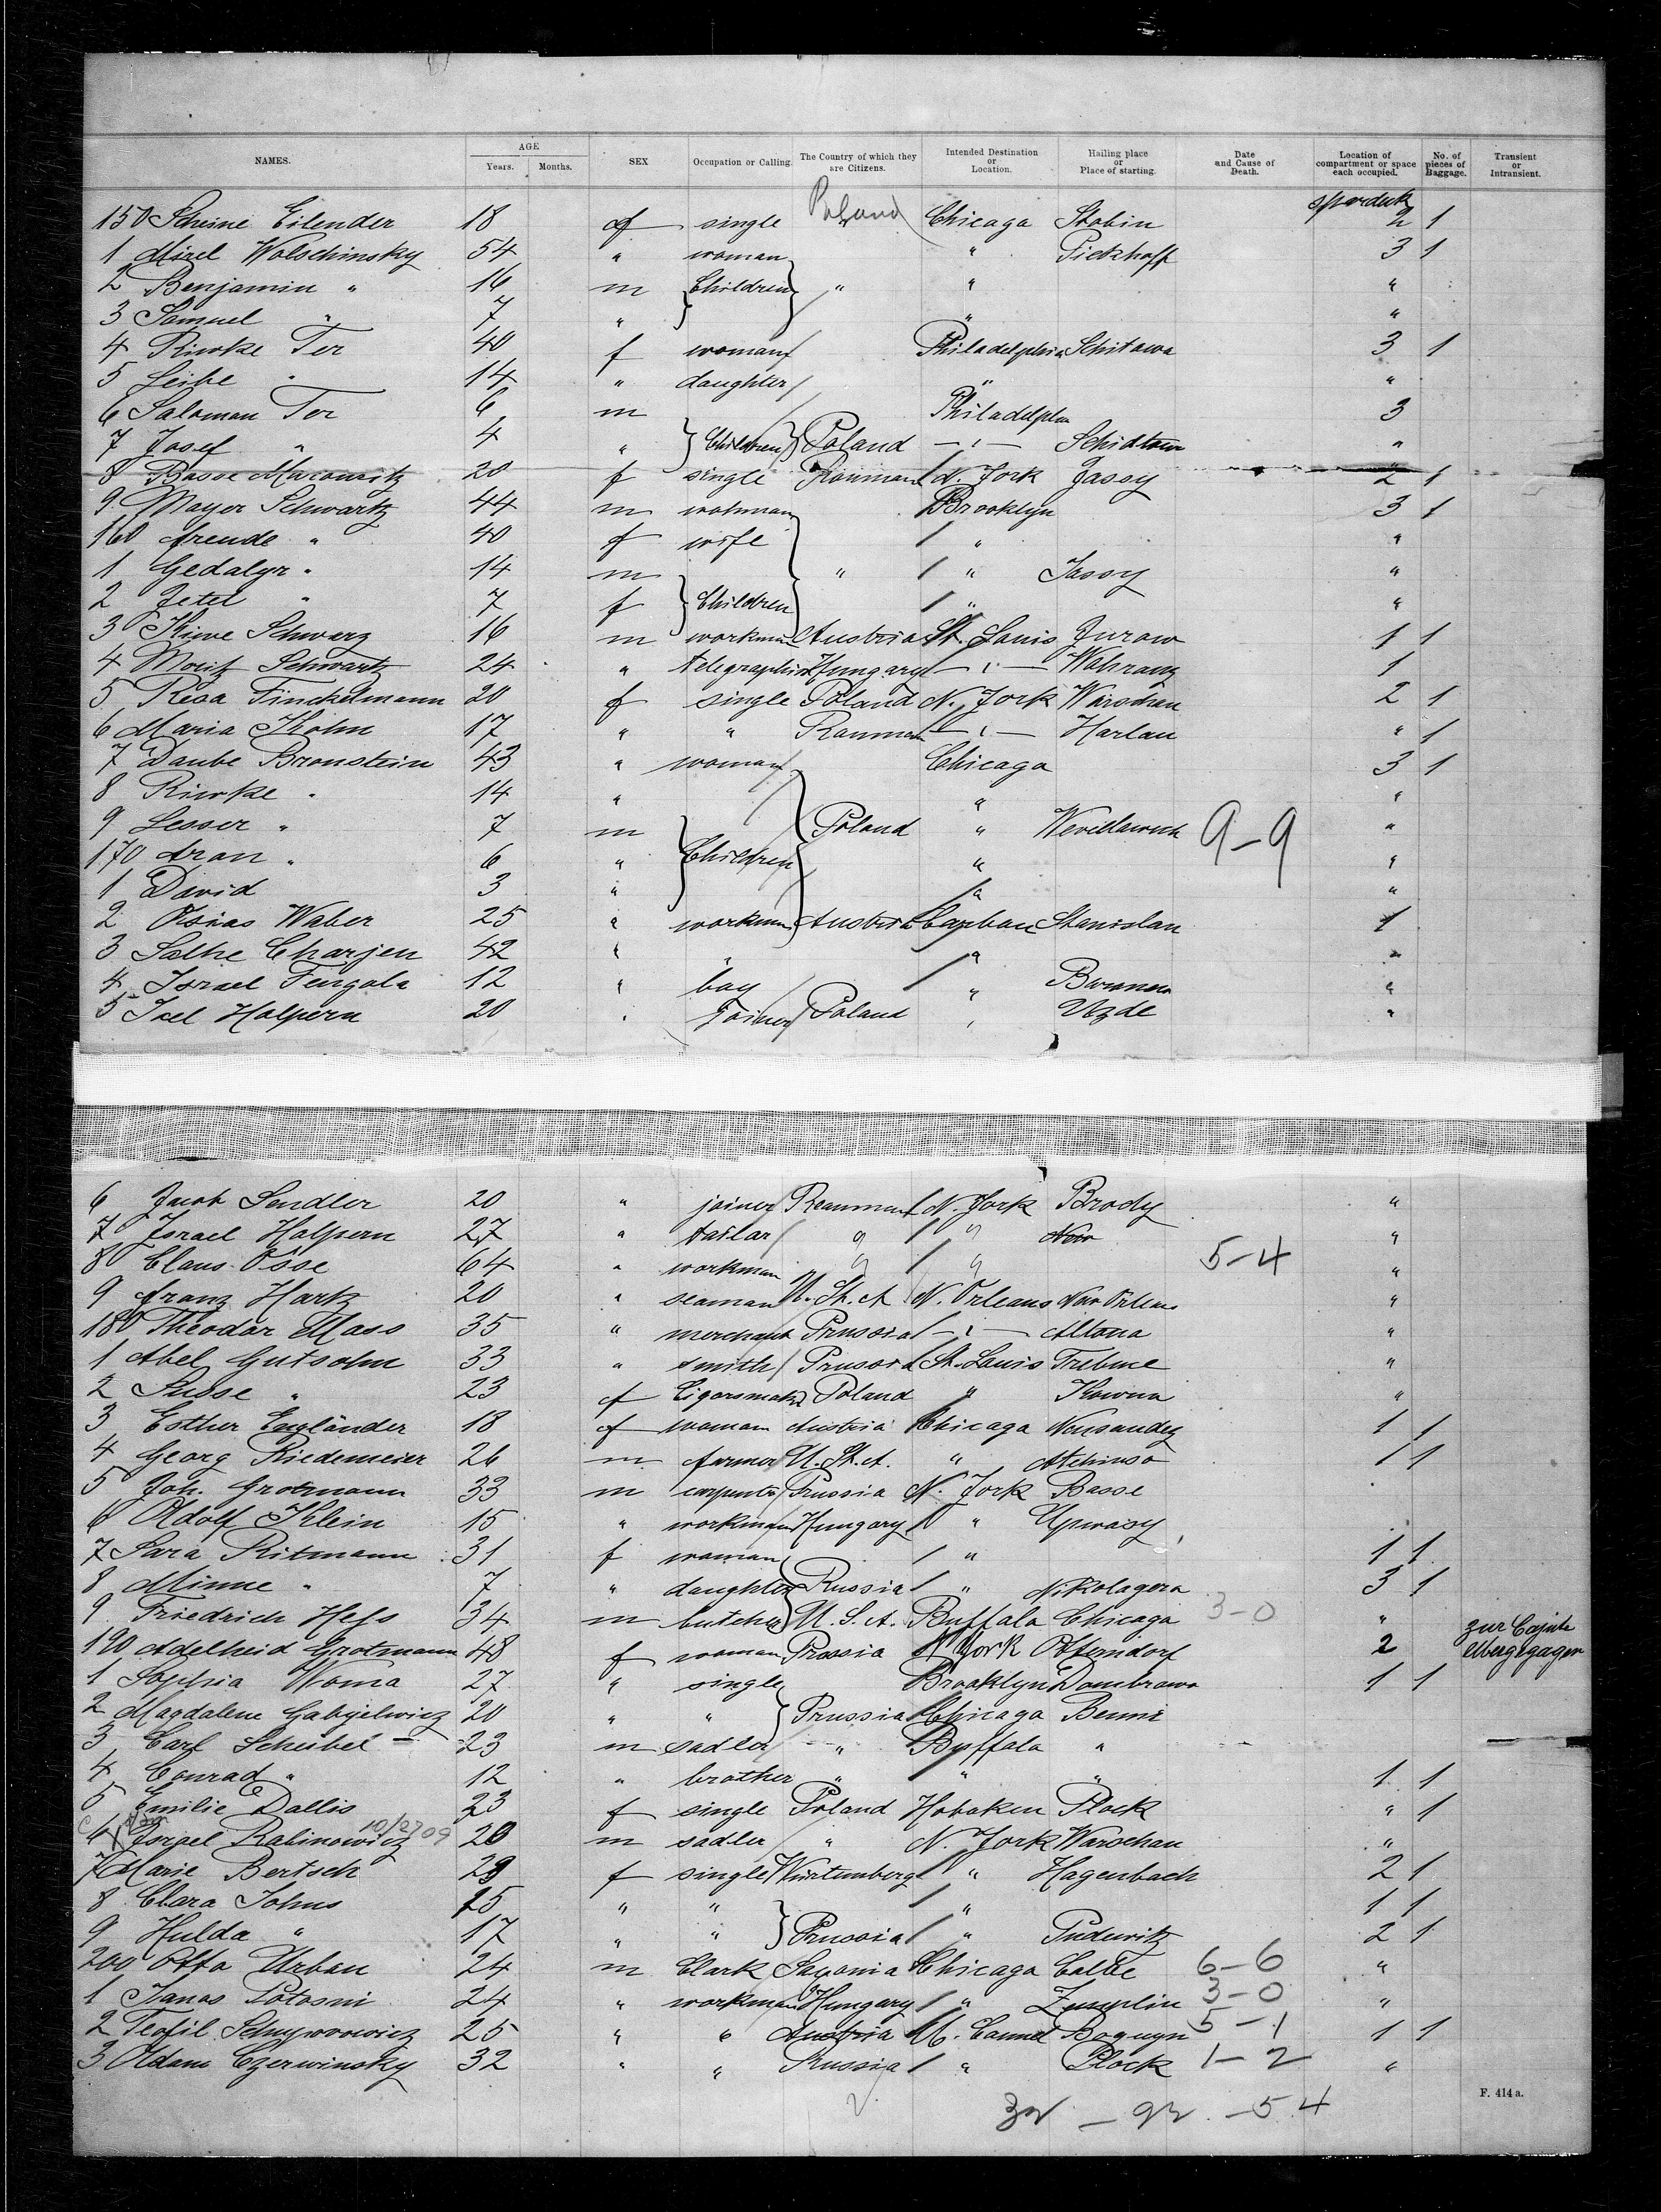 NAMES. AGE Years. Months. SEX Occupation or Calling. The Country of which they are Citizens. Intended Destination or Location. Hailing place or Place of starting. Date and Cause of Death. Location of compartment or space each occupied. No. of pieces of Baggage. Transient or Intransient.
150 Scheine Eilender 18 f single Poland Chicago Stobin 2 1
1 Mirel Wolschinsky 54 " woman " Pickhoff 3 1
2 Benjamin " 16 m Children " " "
3 Samuel " 7 " " "
4 Riwke Ter 40 f woman Philadelphia Schitawa 3 1
5 Leibe " 14 " daughter " "
6 Saloman Ter 6 m Philadelphia 3
7 Josef " 4 " Children Poland - " - "
8 Basse 20 f single N. York Jassy 2 1
9 Mayer Schwartz 44 m Brooklyn 3 1
160 Freude " 40 f wife " "
1 Gedalyr " 14 m " " Jassy "
2 Jetel " 7 f Children " "
3 Schwarz 16 m workman Austria St. Louis Jurow 1 1
4 Moritz Schwartz 24 " telegraphist Hungary - " - 1
5 Resa Finckelmann 20 f single Poland N. York Warschau 2 1
6 Maria Kohn 17 " " - " - Harlau " 1
7 Daube Bronstein 43 " woman Chicago 3 1
8 Riwke " 14 " " "
9 Lesser " 7 m Poland " 9-9 "
170 Aron " 6 " Children " "
1 David 3 " " "
2 Osias Waber 25 " workman Austria Stanislau 1
3 Salke Charjen 42 " " " "
4 Israel Fengola 12 " boy " "
5 Joel Halpern 20 " Joiner Poland " Uzde "
6 Jacob Sendler 20 " joiner N. York Brody "
7 Israel Halpern 27 " tailor " " "
8 Claus Osse 64 " workman " " 5-4 "
9 Franz Hark 20 " seaman U. St. A N. Orleans New Orleans "
180 Theodor Maas 35 " merchant Prussia - " - Altona "
1 Abel Gutsohn 33 " smith Prussia St. Louis "
2 Susse " 23 f Poland " Kowna "
3 Esther Engländer 18 f woman Austria Chicago Neusandez 1 1
4 Georg Riedemeier 26 m farmer U. St. A. " 1 1
5 Joh. Grotmann 33 m carpenter Prussia N. York Basse
6 Adolf Klein 15 " workman Hungary "
7 Sara Ritmann 31 f woman " 1 1
8 Minne " 7 " daughter Russia " 3 1
9 Friedrich Hess 34 m butcher U. S. A. Buffala Chicago 3-0 " zur Cajüte
190 Adelheid Grotmann 48 f woman Prussia N York Otterndorf 2 übergegagen
1 Sophia Woma 27 " single Brooklyn Dombrawa 1 1
2 Magdalene 20 " " Prussia Chicago
3 Carl Scheibel 23 m sadler " Buffala "
4 Conrad " 12 " brother " " " 1 1
5 Emilie Dallis 23 f single Poland Hoboken Plock " 1
6 Israel Rabinowicz 10/2709 20 m sadler " N. York Warschau "
7 Marie Bertsch 29 f single Würtemberg " Hagenbach 2 1
8 Clara Johns 25 " " " 1 1
9 Hulda " 17 " " Prussia " Pudewitz 2 1
200 Otto Urban 24 m Clark Saxonia Chicago Calbe 6-6 "
1 Janos Potosni 24 " workman Hungary " Zemplin 3-0 "
2 Teofil 25 " " Austria 5-1 1 1
3 Adam Czerwinsky 32 " " Russia " Plock 1-2 "
F. 414 a.